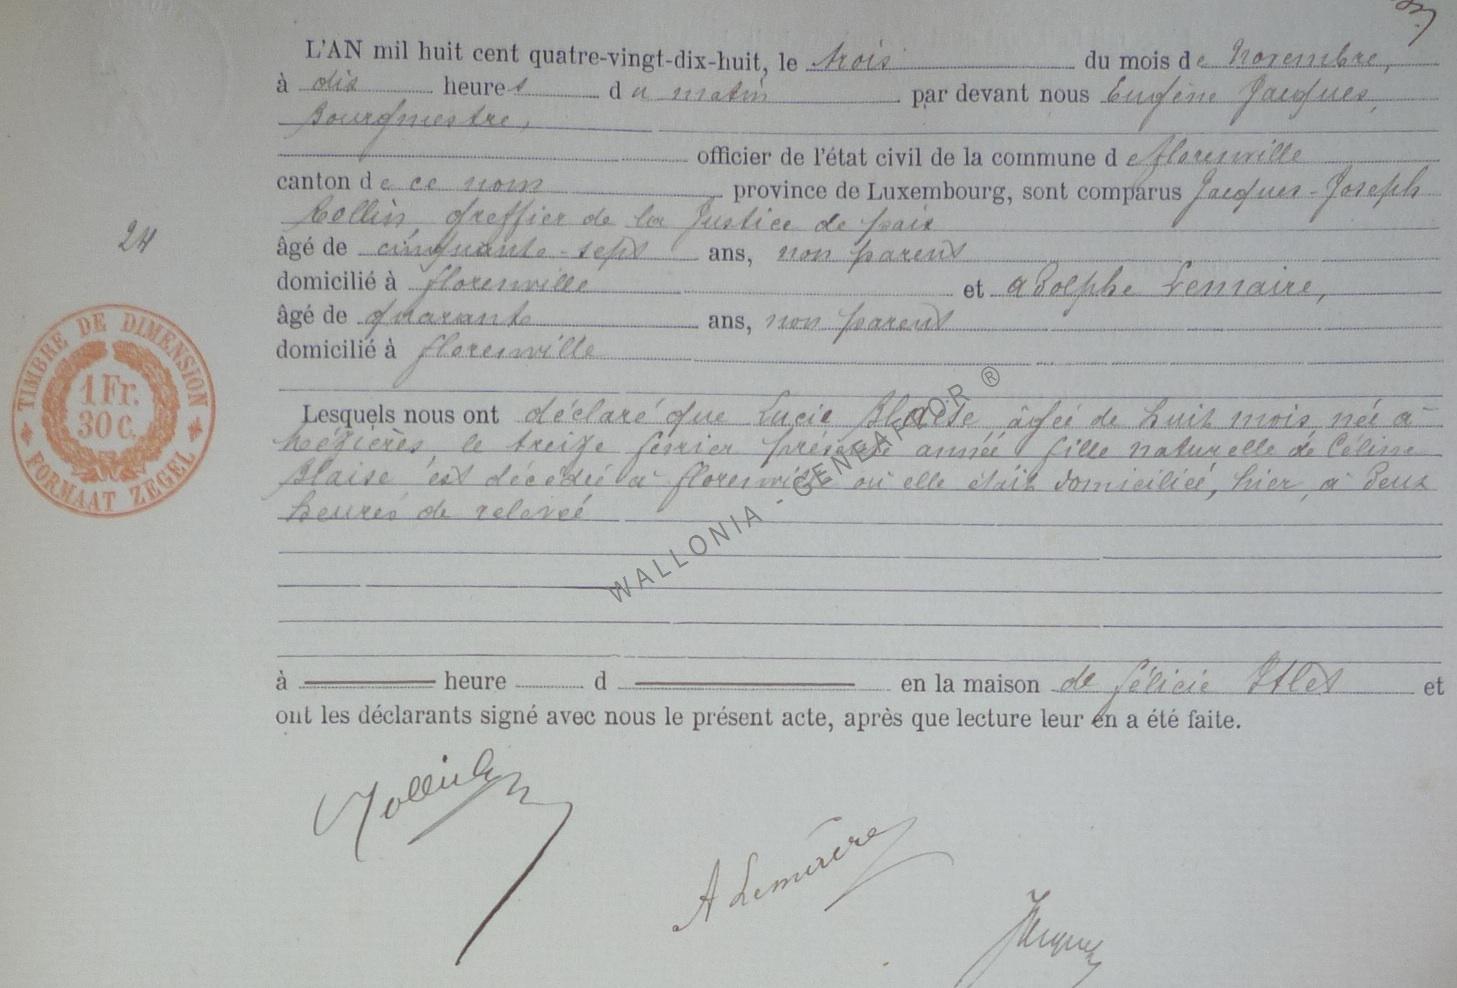 L'AN mil huit cent quatre-vingt-dix-huit, le trois du mois de Novembre,
à dix heures du matin par devant nous Eugène Jacques,
Bourgmestre,
officier de l'état civil de la commune de Florenville
canton de ce nom province de Luxembourg, sont comparus Jacques-Joseph
Collin, greffier de la Justice de paix
âgé de cinquante-sept ans, non parent
24
domicilié à Florenville et Adolphe Lemaire,
âgé de quarante ans, non parent
domicilié à Florenville
TIMBRE DE DIMENSION
1 Fr.
30 C.
FORMAAT ZEGEL
Lesquels nous ont déclaré que Lucie Blaise âgée de huit mois, née à
Mézières, le treize février présente année fille naturelle de Céline
Blaise est décédée à Florenville où elle était domiciliée, hier, à deux
heures de relevée
WALLONIA - GENEAFOR ®
à heure d en la maison de Félicie et
ont les déclarants signé avec nous le présent acte, après que lecture leur en a été faite.
Collin
A Lemaire
Jacques